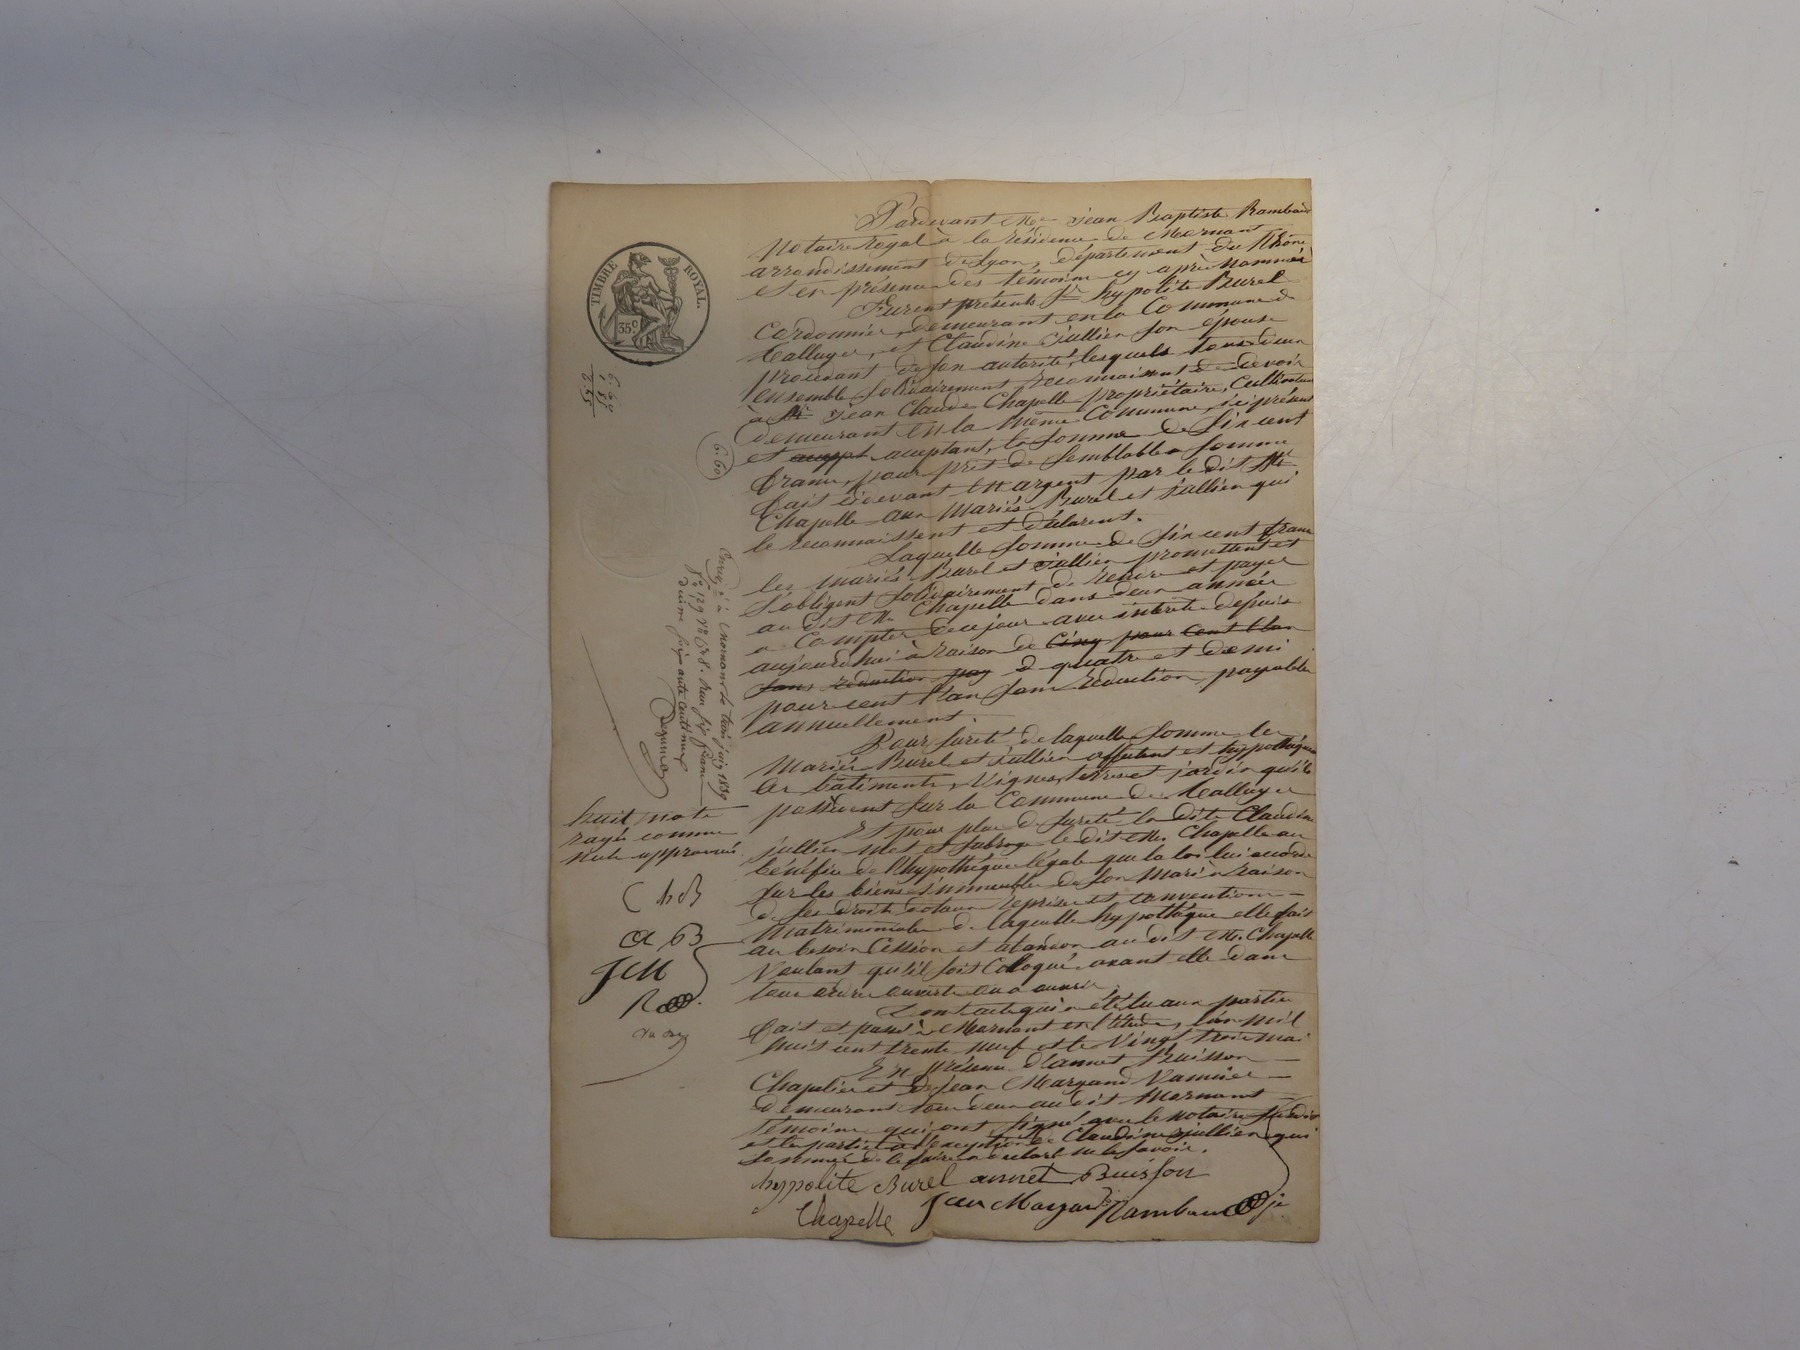 TIMBRE ROYAL.
35c.
Pardevant Me Jean Baptiste Rambaud
Notaire Royal à la résidence de Mornant
arrondissement de Lyon, département du Rhône
et en présence des témoins cy après nommés
Furent présents Sr hypolite Burel
Cordonnier, demeurant en la Commune de
Talluyer, et Claudine Jullien son épouse
procédant de son autorité, lesquels tous deux
ensemble solidairement reconnaissent devoir
à Mr Jean Claude Chapelle propriétaire, Cultivateur
demeurant en la même Commune, ici présent
et accept acceptant, la somme de Six cent
francs, pour prêt de semblable somme
fait ci devant en argent par le dit Mr
Chapelle aux mariés Burel et Jullien qui
le reconnaissent et déclarent.
Laquelle somme de Six cent francs
les mariés Burel et Jullien promettent et
s'obligent solidairement de rendre et payer
au dit Mr Chapelle dans deux années
a Compter de ce jour avec intérêts depuis
aujourd'hui à raison de Cinq pour Cent l'an
sans réduction pay de quatre et demi
pour cent l'an sans réduction payable
annuellement.
Pour sureté de laquelle somme les
Mariés Burel et Jullien affectent et hypothèquent
les bâtiments, Vignes, terres et jardin qu'ils
possèdent sur la Commune de Talluyer
Et pour plus de sureté la dite Claudine
jullien met et subroge le dit Mr Chapelle au
bénéfice de l'hypothèque légale que la loi lui accorde
sur les biens immeubles de son Mari à raison
de ses droits dotaux reprises et conventions
Matrimoniales de laquelle hypothèque elle fait
au besoin Cession et abandon au dit Mr Chapelle
Voulant qu'il soit Colloqué avant elle dans
tous ordres ouverts ou a ouvrir
Dont acte qui a été lu aux parties
fait et passé à Mornant en l'étude, l'an mil
huit cent trente neuf et le Vingt trois mai
En présence d'annet Buisson
Chapelier et de Jean Margand Vannier
demeurant tous deux au dit Mornant
témoins qui ont signé avec le notaire susdit
et les parties à l'exception de Claudine jullien qui
sommée de le faire a déclaré ne le savoir.
hyppolite Burel annet Buisson
Chapelle Jean Margand Rambaud
6.60
1.85
8.45
6.60
Enregé à Mornant le trois juin 1839
fo 129 Ro Reçu six francs
soixante centimes
huit mots
rayés comme
nuls approuvés
C h B
a B
JM
R